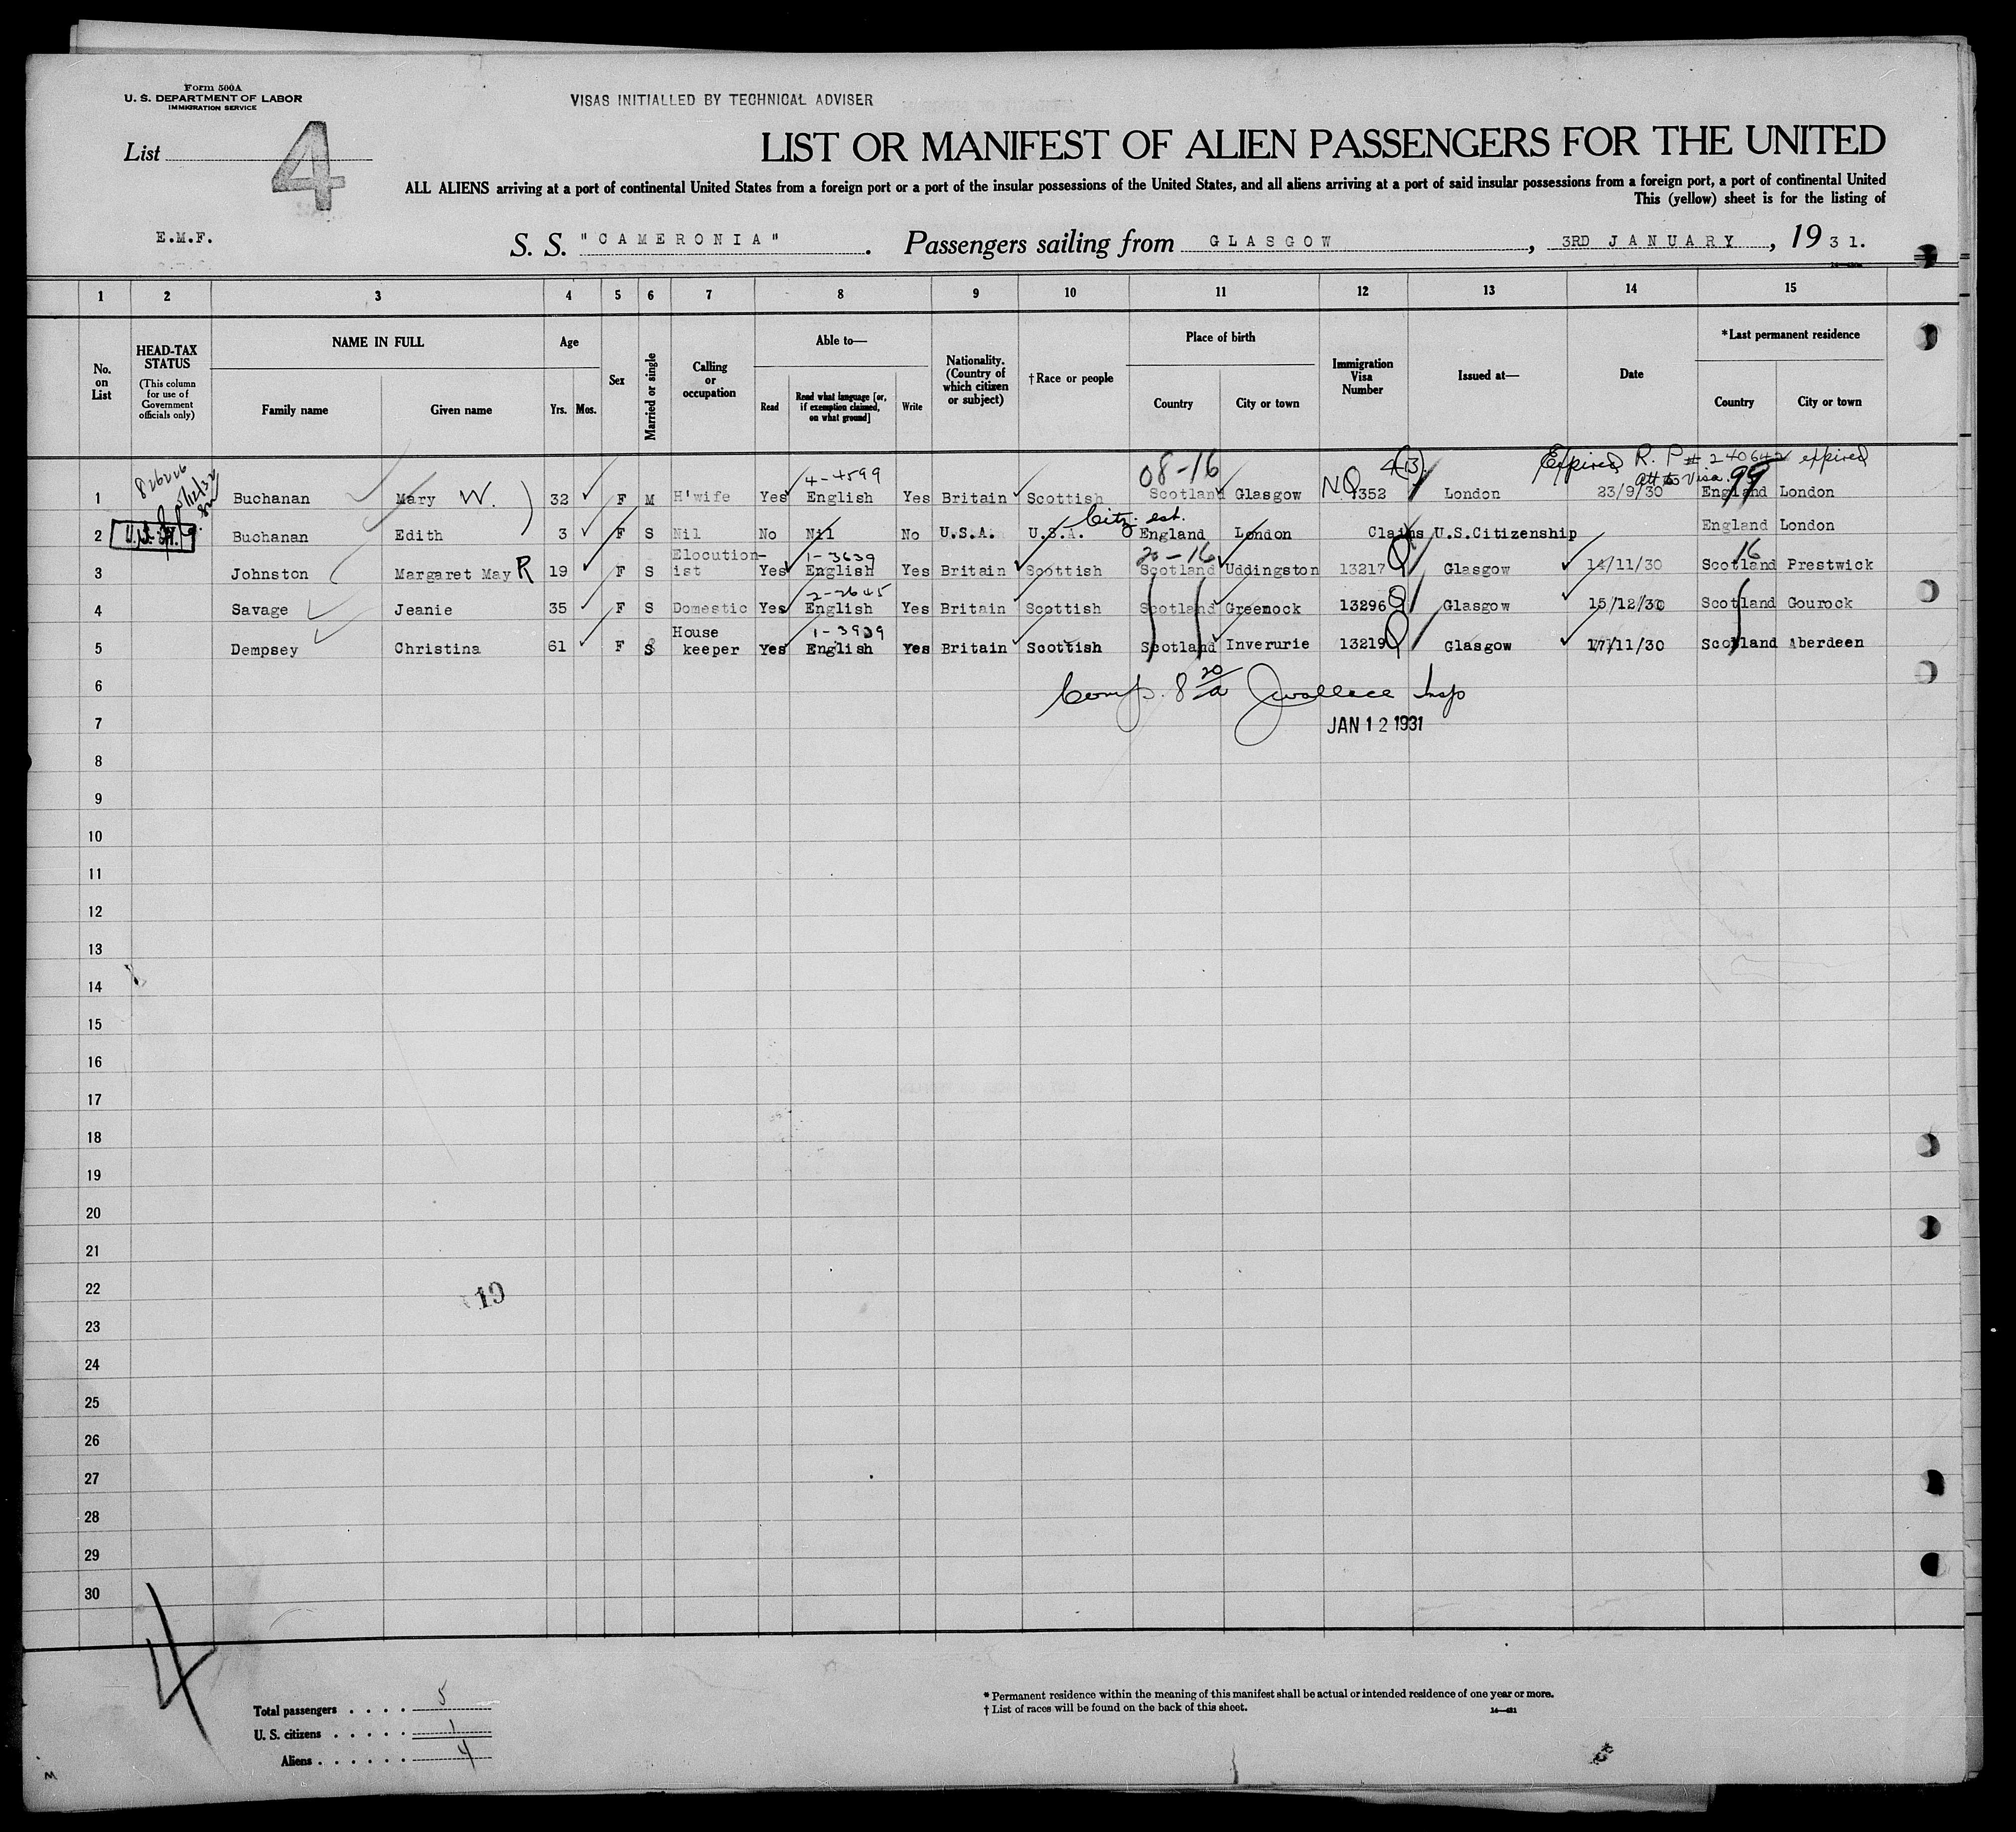 Form 500A
U. S. DEPARTMENT OF LABOR
IMMIGRATION SERVICE
VISAS INITIALLED BY TECHNICAL ADVISER
List 4
LIST OR MANIFEST OF ALIEN PASSENGERS FOR THE UNITED
ALL ALIENS arriving at a port of continental United States from a foreign port or a port of the insular possessions of the United States, and all aliens arriving at a port of said insular possessions from a foreign port, a port of continental United
This (yellow) sheet is for the listing of
E.M.F.
S. S. "CAMERONIA". Passengers sailing from GLASGOW, 3RD JANUARY, 1931.
1 2 3 4 5 6 7 8 9 10 11 12 13 14 15
No. on List
HEAD-TAX STATUS
(This column for use of Government officials only)
NAME IN FULL
Family name
Given name
Age
Yrs. Mos.
Sex
Married or single
Calling or occupation
Able to—
Read
Read what language [or, if exemption claimed, on what ground]
Write
Nationality. (Country of which citizen or subject)
†Race or people
Place of birth
Country
City or town
Immigration Visa Number
Issued at—
Date
*Last permanent residence
Country
City or town
Expired R. P # 240642 expired
att to Visa
4-4599 08-16 4(13) 99
1 Buchanan Mary W. 32 F M H'wife Yes English Yes Britain Scottish Scotland Glasgow NQ 1352 London 23/9/30 England London
Citz. est.
2 Buchanan Edith 3 F S Nil No Nil No U.S.A. U.S.A. England London Claims U.S.Citizenship England London
1-3639 20-16 16
3 Johnston Margaret May R 19 F S Elocution-ist Yes English Yes Britain Scottish Scotland Uddingston 13217 Q Glasgow 14/11/30 Scotland Prestwick
2-2645
4 Savage Jeanie 35 F S Domestic Yes English Yes Britain Scottish Scotland Greenock 13296 Glasgow 15/12/30 Scotland Gourock
1-3909
5 Dempsey Christina 61 F S House keeper Yes English Yes Britain Scottish Scotland Inverurie 13219 Q Glasgow 17/11/30 Scotland Aberdeen
6 Comp. 8 20/a JWallace Insp
7 JAN 12 1931
8
9
10
11
12
13
14
15
16
17
18
19
20
21
22
19
23
24
25
26
27
28
29
30
4
Total passengers . . . . 5
U. S. citizens . . . . . 1
Aliens . . . . . . 4
* Permanent residence within the meaning of this manifest shall be actual or intended residence of one year or more.
† List of races will be found on the back of this sheet.